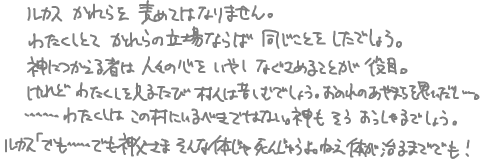 ルカス かれらを 責めてはなりません。
わたくしとて かれらの立場ならば 同じことをしたでしょう。
神につかえる者は 人々の心を いやし なぐさめることが 役目。
けれど わたくしを見るたび 村人は苦しむでしょう。おのれのあやまちを思いだし…。
……わたくしは この村にいるべきではない。神も そう おっしゃるでしょう。
ルカス「でも……でも神父さま そんな体じゃ 死んじゃうよ。ねえ 体が治るまででも！